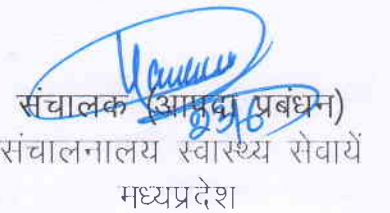 संचालक (आपदा प्रबंधन)
25/6
संचालनालय स्वास्थ्य सेवायें
मध्यप्रदेश